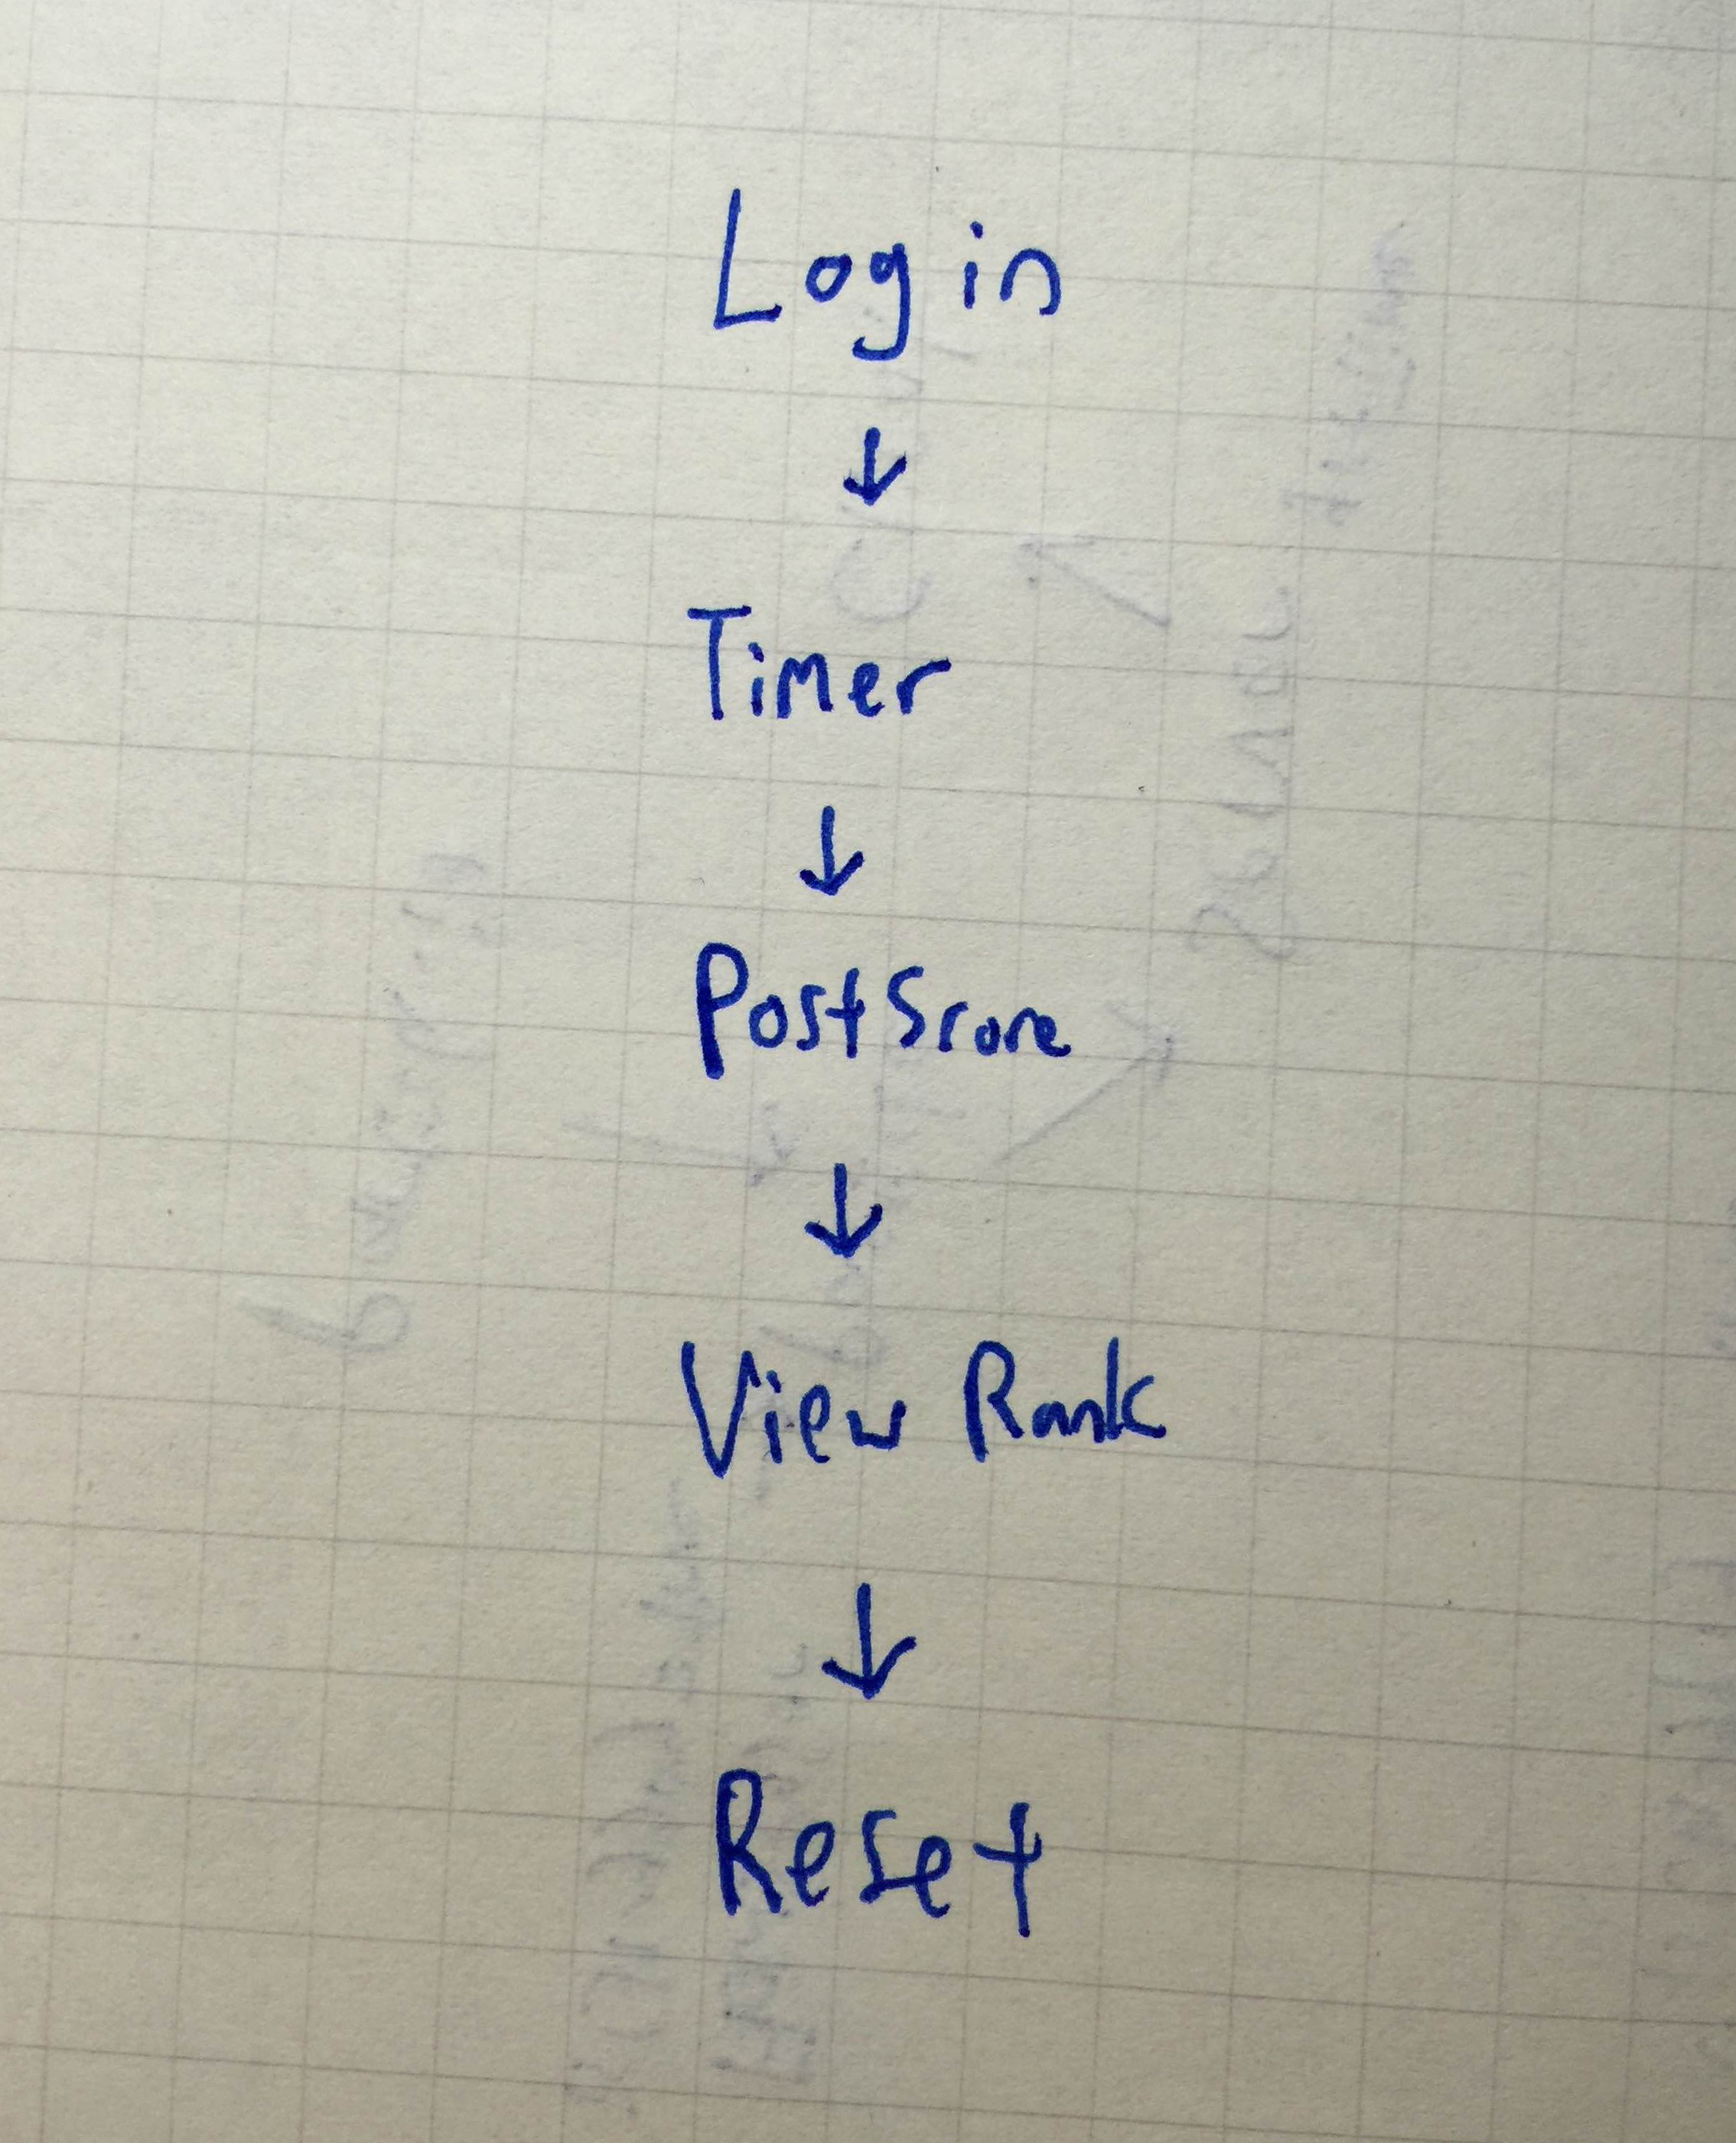 Login
↓
Timer
↓
Post Score
↓
View Rank
↓
Reset